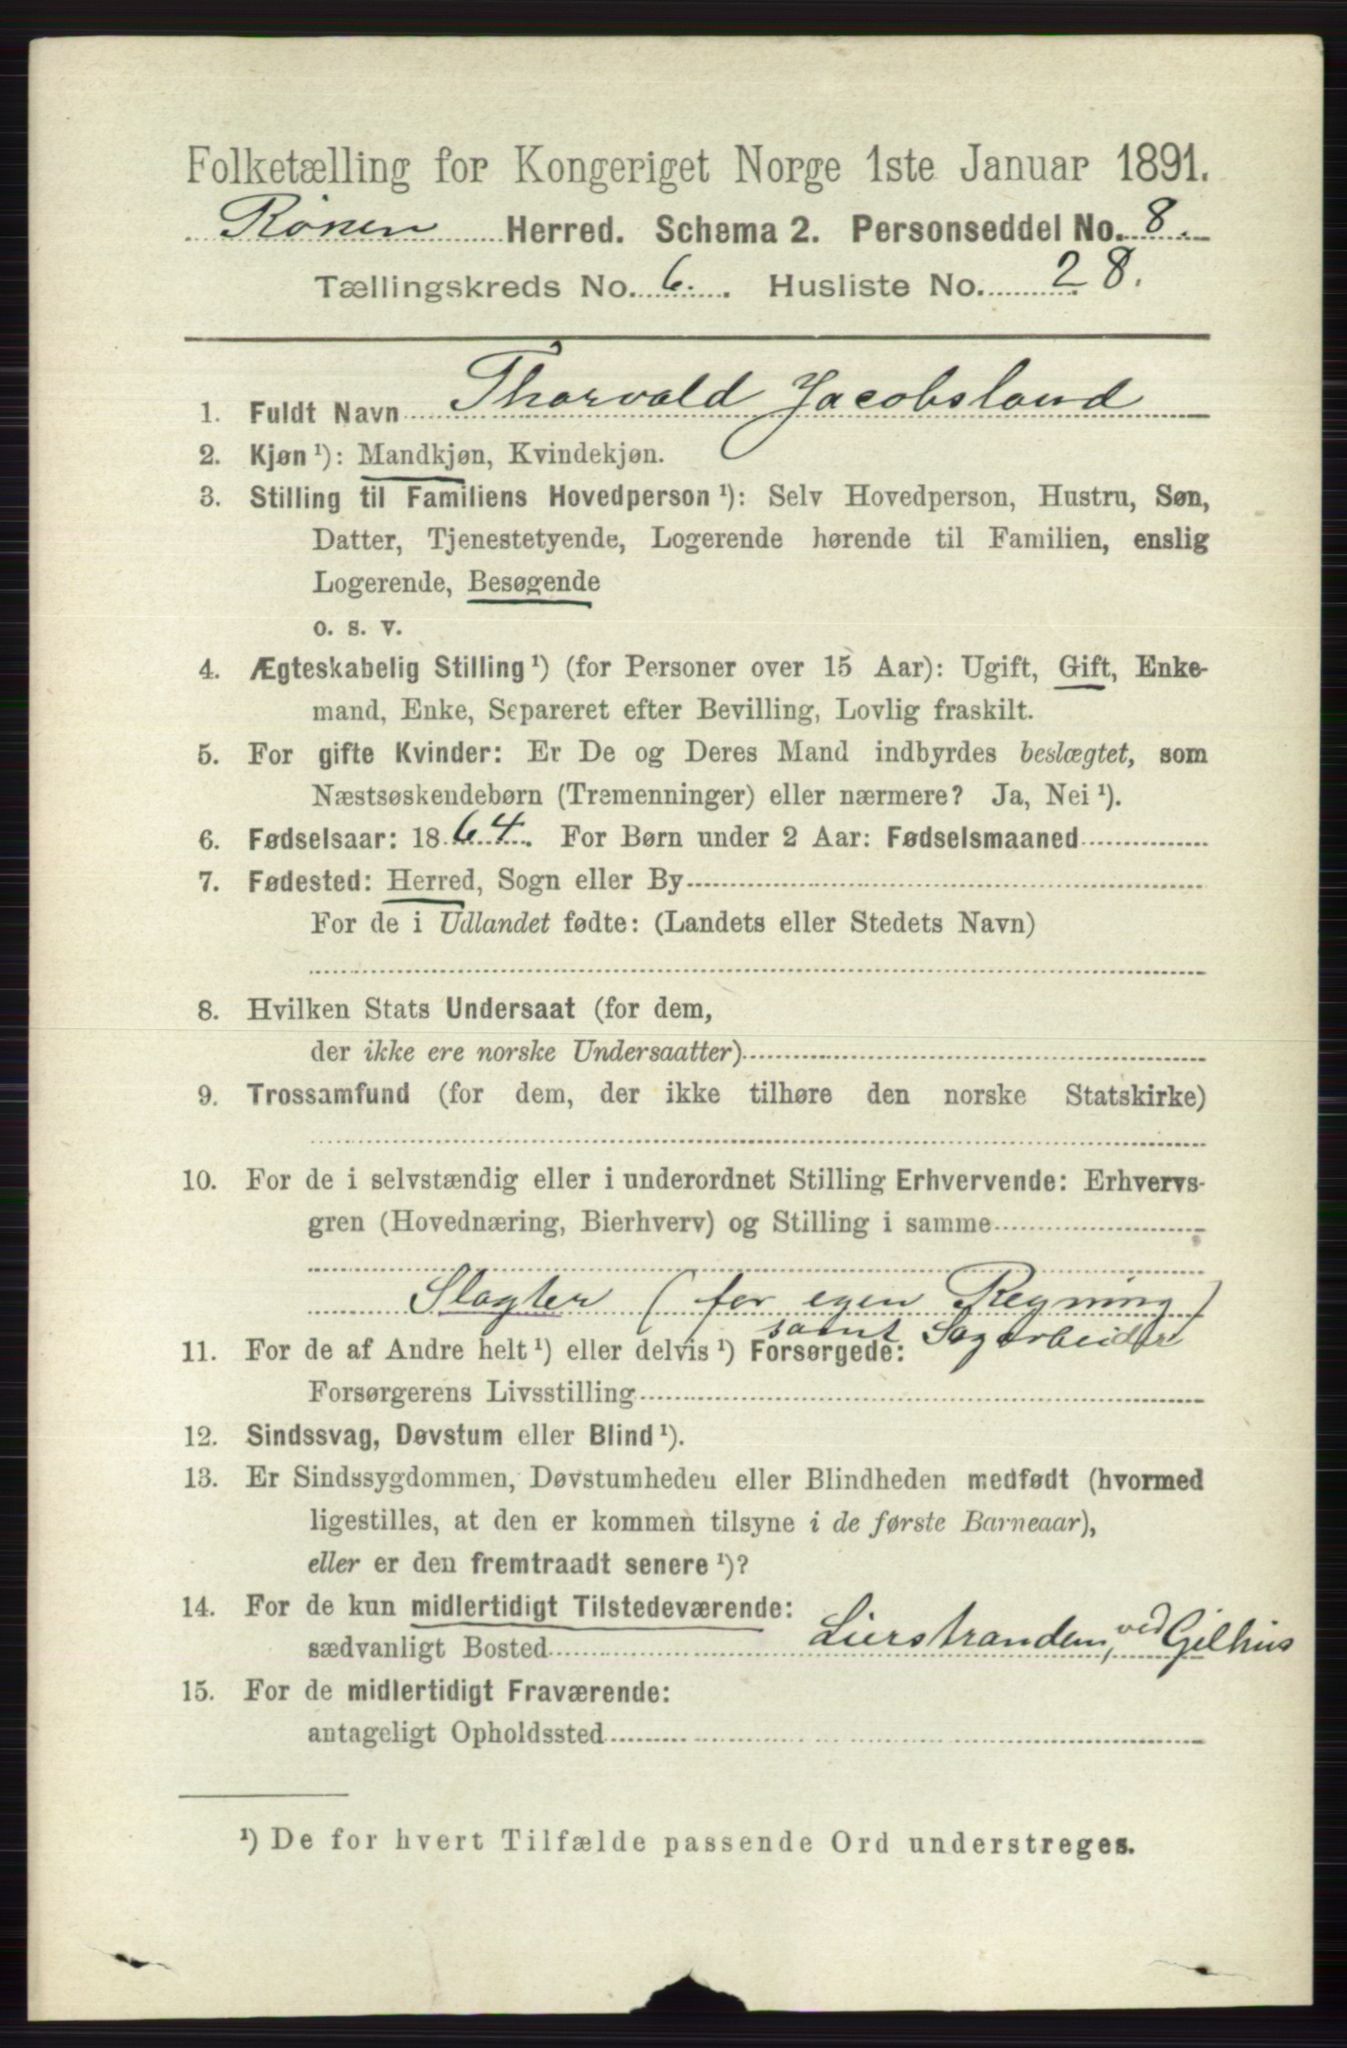 Folketælling for Kongeriget Norge 1ste Januar 1891.
Røken Herred. Schema 2. Personseddel No. 8.
Tællingskreds No. 6. Husliste No. 28.
1. Fuldt Navn Thorvald Jacobsland
2. Kjøn ¹): Mandkjøn, Kvindekjøn.
3. Stilling til Familiens Hovedperson ¹): Selv Hovedperson, Hustru, Søn,
Datter, Tjenestetyende, Logerende hørende til Familien, enslig
Logerende, Besøgende
o. s. v.
4. Ægteskabelig Stilling ¹) (for Personer over 15 Aar): Ugift, Gift, Enke-
mand, Enke, Separeret efter Bevilling, Lovlig fraskilt.
5. For gifte Kvinder: Er De og Deres Mand indbyrdes beslægtet, som
Næstsøskendebørn (Tremenninger) eller nærmere? Ja, Nei ¹).
6. Fødselsaar: 1864. For Børn under 2 Aar: Fødselsmaaned
7. Fødested: Herred, Sogn eller By
For de i Udlandet fødte: (Landets eller Stedets Navn)
8. Hvilken Stats Undersaat (for dem,
der ikke ere norske Undersaatter)
9. Trossamfund (for dem, der ikke tilhøre den norske Statskirke)
10. For de i selvstændig eller i underordnet Stilling Erhvervende: Erhvervs-
gren (Hovednæring, Bierhverv) og Stilling i samme
Slagter (for egen Regning)
samt Sagarbeider
11. For de af Andre helt ¹) eller delvis ¹) Forsørgede:
Forsørgerens Livsstilling
12. Sindssvag, Døvstum eller Blind ¹).
13. Er Sindssygdommen, Døvstumheden eller Blindheden medfødt (hvormed
ligestilles, at den er kommen tilsyne i de første Barneaar),
eller er den fremtraadt senere ¹)?
14. For de kun midlertidigt Tilstedeværende:
sædvanligt Bosted Lierstranden, ved Gilhus
15. For de midlertidigt Fraværende:
antageligt Opholdssted
¹) De for hvert Tilfælde passende Ord understreges.